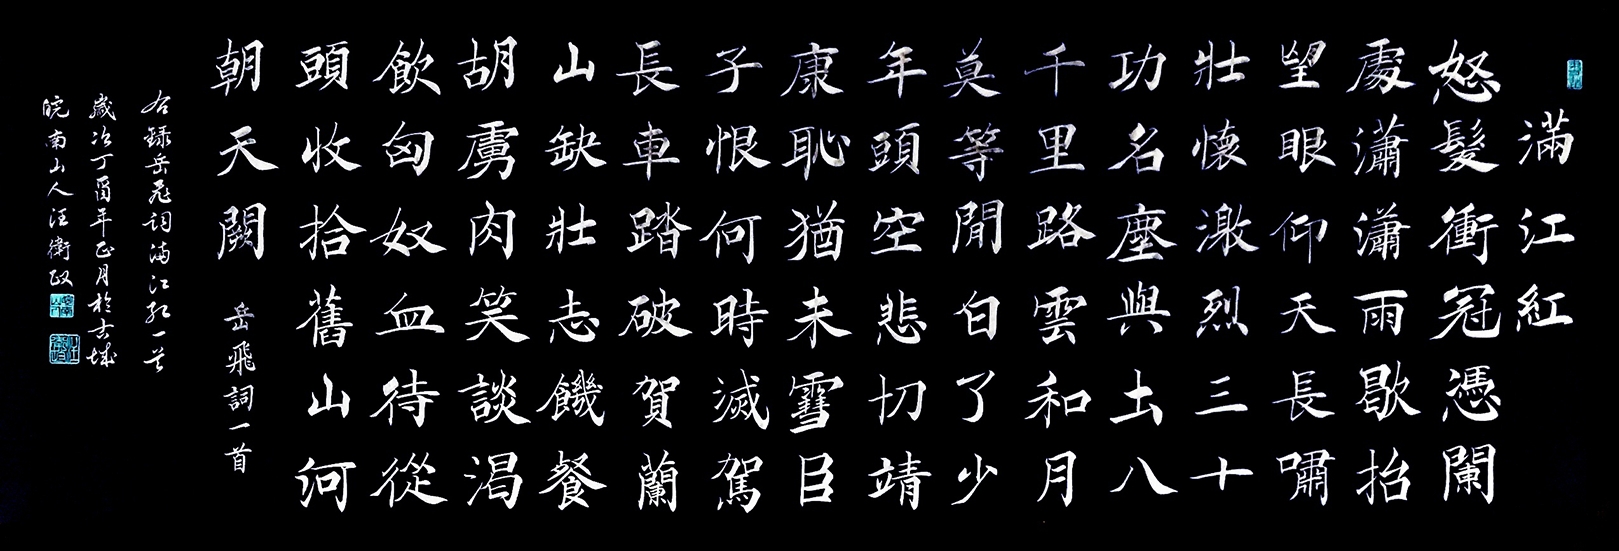 滿江紅
怒髮衝冠憑闌
處瀟瀟雨歇抬
望眼仰天長嘯
壯懷激烈三十
功名塵與土八
千里路雲和月
莫等閒白了少
年頭空悲切靖
康恥猶未雪臣
子恨何時滅駕
長車踏破賀蘭
山缺壯志饑餐
胡虜肉笑談渴
飲匈奴血待從
頭收拾舊山河
朝天闕 岳飛詞一首
右錄岳飛詞滿江紅一首
歲次丁酉年正月於古城
皖南山人汪衛政